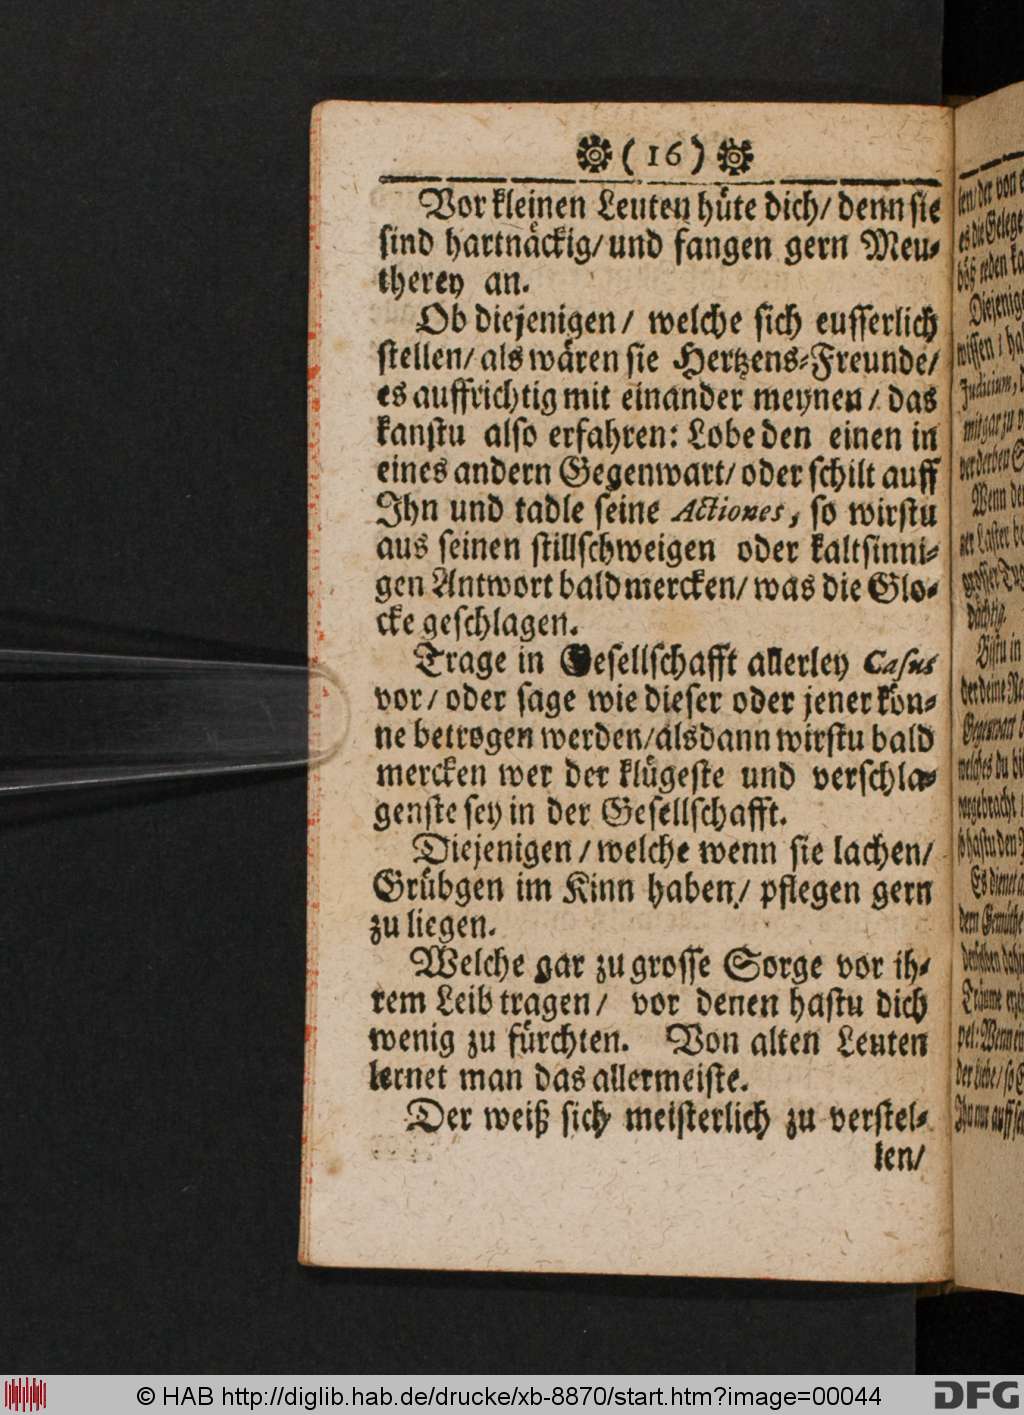 (16)
Vor kleinen Leuten hüte dich/ denn sie
sind hartnäckig/ und fangen gern Meu-
therey an.
Ob diejenigen/ welche sich eusserlich
stellen/ als wären sie Hertzens-Freunde/
es auffrichtig mit einander meynen/ das
kanstu also erfahren: Lobe den einen in
eines andern Gegenwart/ oder schilt auff
Ihn und tadle seine Actiones, so wirstu
aus seinen stillschweigen oder kaltsinni-
gen Antwort bald mercken/ was die Glo-
cke geschlagen.
Trage in Gesellschafft allerley Casus
vor/ oder sage wie dieser oder jener kön-
ne betrogen werden/ alsdann wirstu bald
mercken wer der klügeste und verschla-
genste sey in der Gesellschafft.
Diejenigen/ welche wenn sie lachen/
Grübgen im Kinn haben/ pflegen gern
zu liegen.
Welche gar zu grosse Sorge vor ih-
rem Leib tragen/ vor denen hastu dich
wenig zu fürchten. Von alten Leuten
lernet man das allermeiste.
Der weiß sich meisterlich zu verstel-
len/
© HAB http://diglib.hab.de/drucke/xb-8870/start.htm?image=00044
DFG